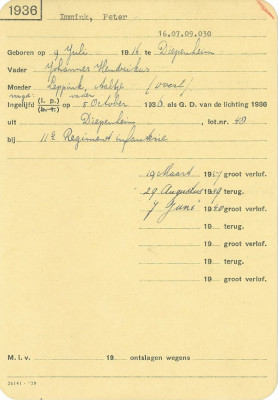 1936
Immink, Peter
16.07.09.030
Geboren op 9 Juli 1916 te Diepenheim
Vader Johannes Hendrikus
Moeder Leppink, Aaltje (voorl)
vader
Ingelijfd (l. p.) op 5 October 1936 als G. D. van de lichting 1936
(b.t.)
uit Diepenheim, lot.nr 40
bij 11e Regiment infanterie
19 Maart 1937 groot verlof.
29 Augustus 1939 terug.
7 Juni 1940 groot verlof.
19 terug.
19 groot verlof.
19 terug.
19 groot verlof.
M.i.v. 19 ontslagen wegens
26141 - '39